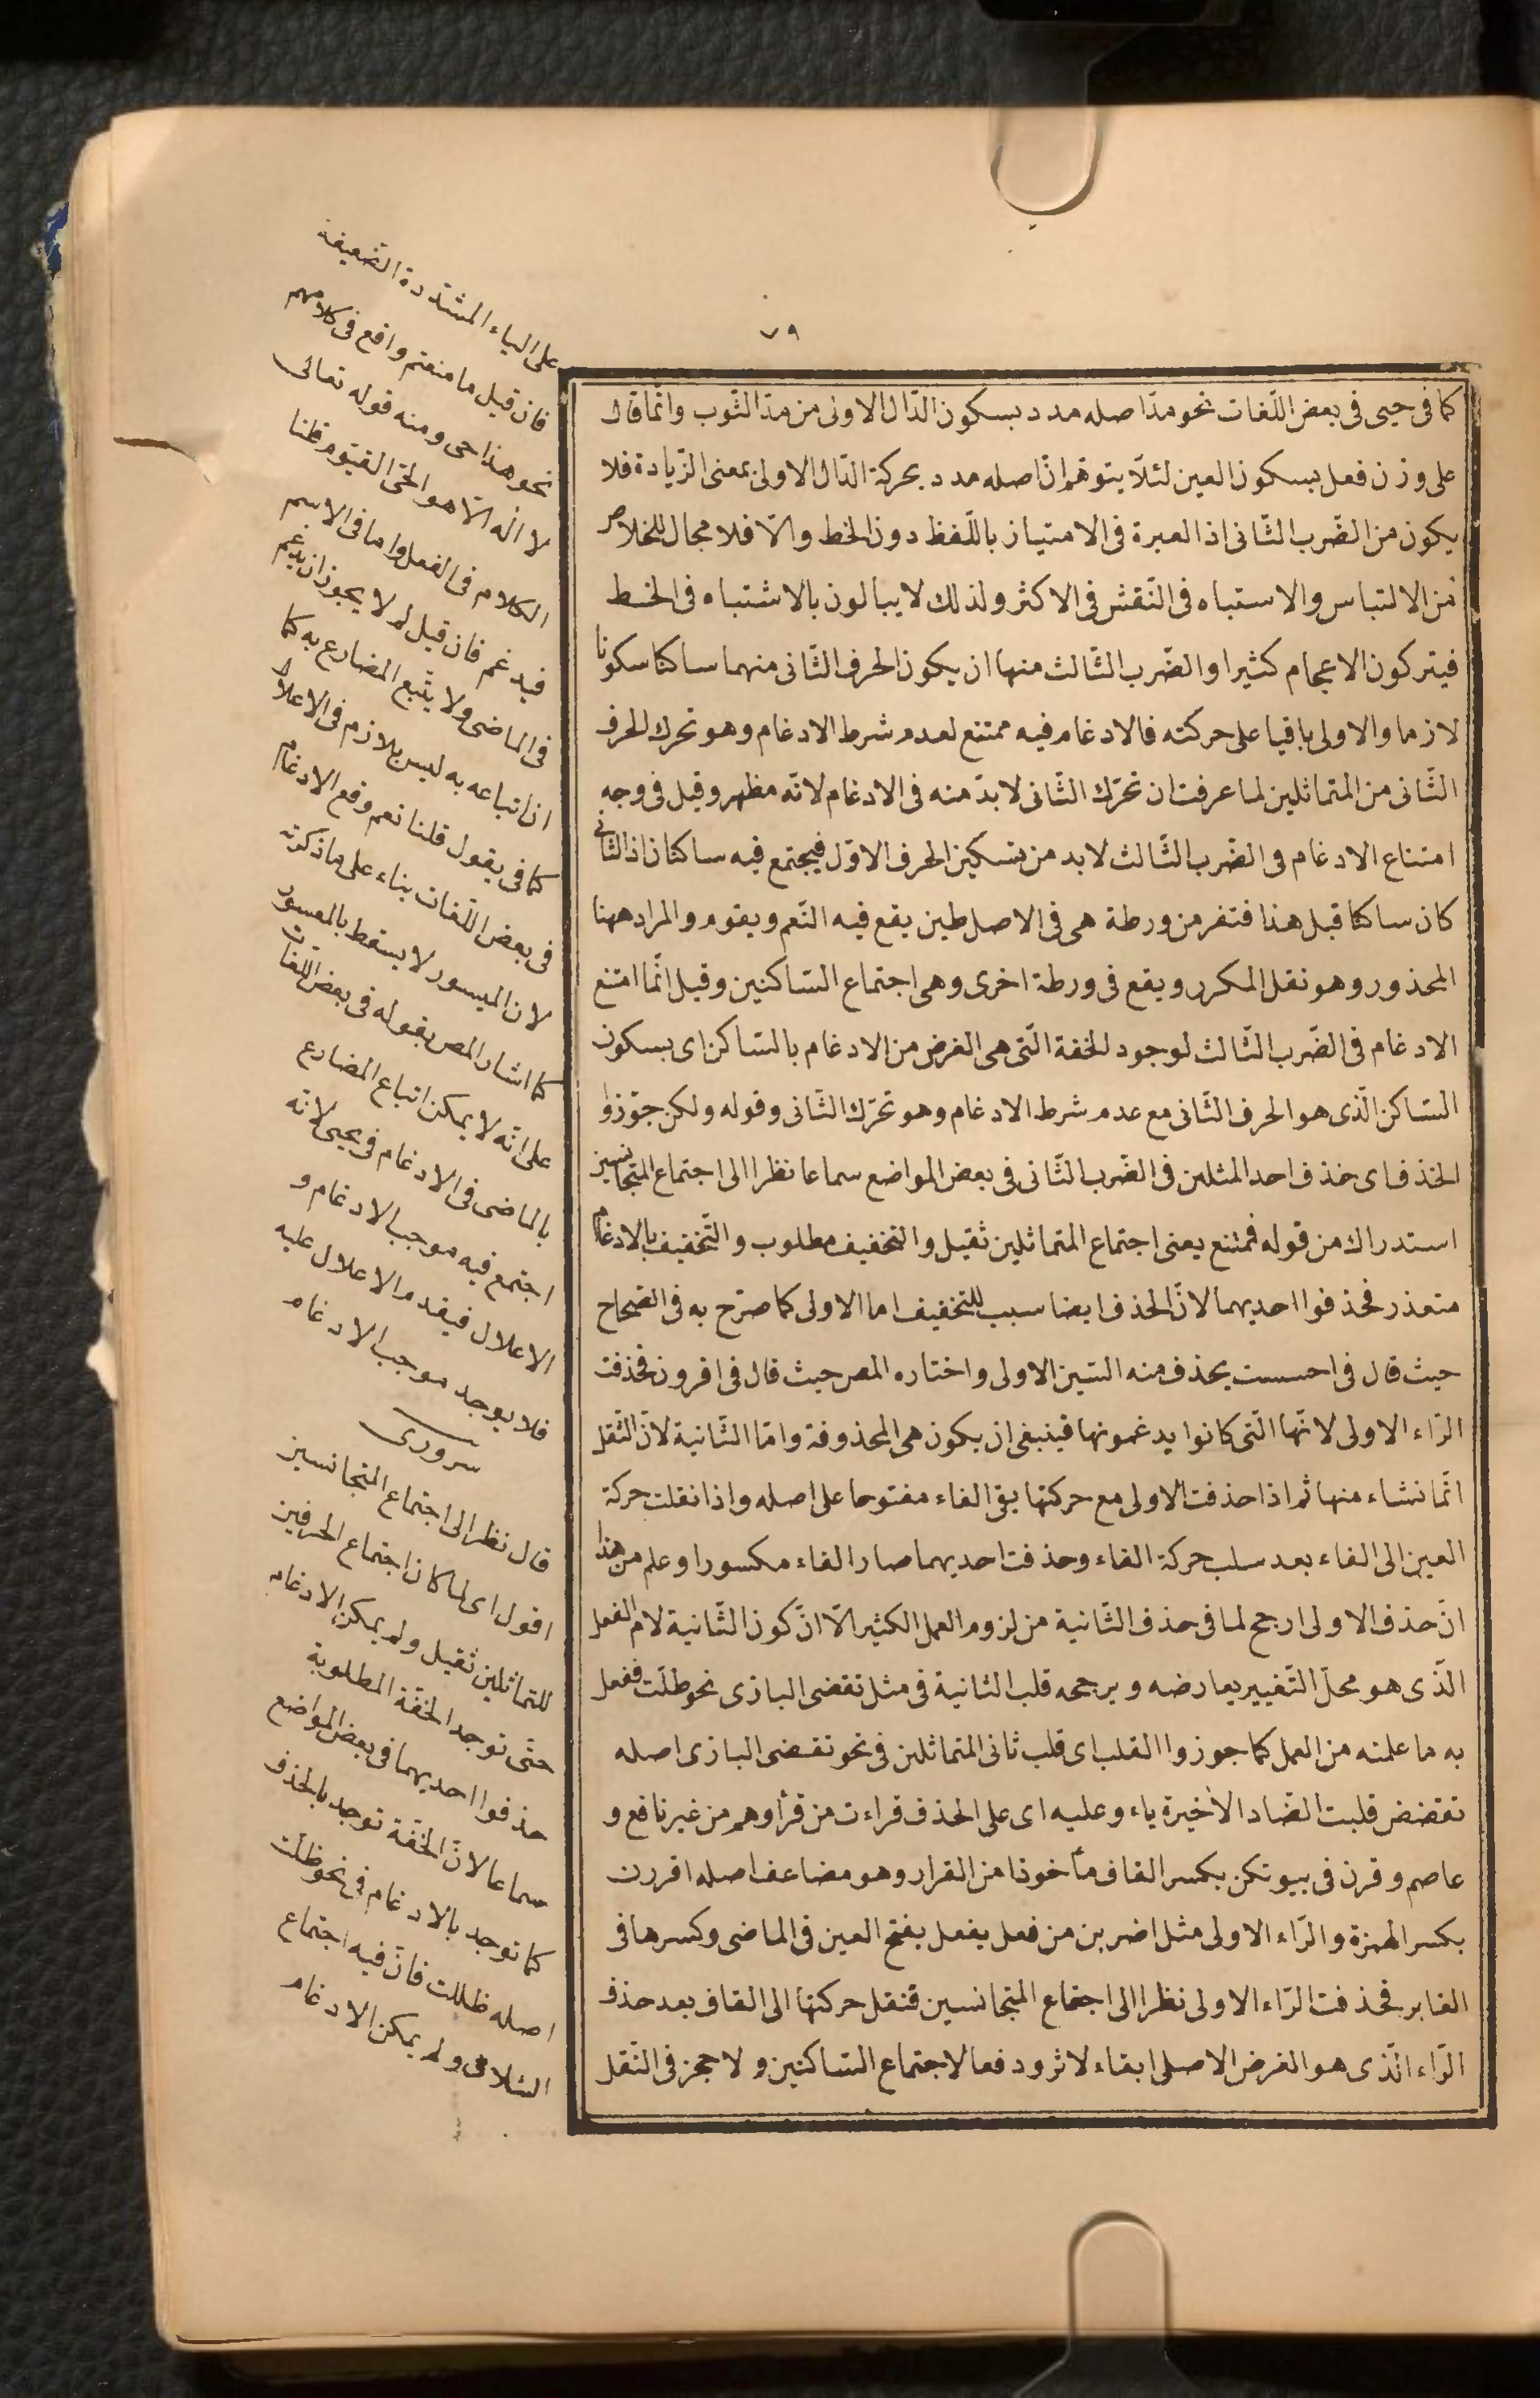 ٧٩
كما فى حيى فى بعض اللّغات نحو مدّ اصله مدد بسكون الدّال الاولى من مدّ الثّوب وانّما قال
على وزن فعل بسكون العين لئلّا يتوهّم انّ اصله مدد بحركة الدّال الاولى بمعنى الزّيادة فلا
يكون من الضّرب الثّانى اذ العبرة فى الامتياز باللّفظ دون الخط والّا فلا مجال للخلاص
من الالتباس والاستباه فى النّقش فى الاكثر ولذلك لا يبالون بالاشتباه فى الخط
فيتركون الاعجام كثيرا والضّرب الثّالث منها ان يكون الحرف الثّانى منهما ساكنا سكونا
لازما والاولى باقيا على حركته فالادغام فيه ممتنع لعدم شرط الادغام وهو تحرك الحرف
الثّانى من المتماثلين لما عرفت ان تحرّك الثّانى لا بدّ منه فى الادغام لانّه مظهر وقيل فى وجه
امتناع الادغام فى الضّرب الثّالث لابد من تسكين الحرف الاوّل فيجتمع فيه ساكنان اذ الثّانى
كان ساكنا قبل هذا فتفر من ورطة هى فى الاصل طين يقع فيه النّعم ويقوم والمراد ههنا
المحذور وهو نقل المكرر ويقع فى ورطة اخرى وهى اجتماع السّاكنين وقيل انّما امتنع
الادغام فى الضّرب الثّالث لوجود الخفة الّتى هى الغرض من الادغام بالسّاكن اى بسكون
السّاكن الّذى هو الحرف الثّانى مع عدم شرط الادغام وهو تحرّك الثّانى وقوله ولكن جوّزوا
الحذف اى حذف احد المثلين فى الضّرب الثّانى فى بعض المواضع سماعا نظرا الى اجتماع المتجانسين
استدراك من قوله فممتنع يعنى اجتماع المتماثلين ثقيل والتخفيف مطلوب والتّخفيف بالادغام
متعذر فحذفوا احديهما لانّ الحذف ايضا سبب للتخفيف اما الاولى كما صرّح به فى الصّحاح
حيث قال فى احسست يحذف منه السّين الاولى واختاره المص حيث قال فى اقرون فحذفت
الرّاء الاولى لانّها الّتى كانوا يدغمونها فينبغى ان يكون هى المحذوفة وامّا الثّانية لانّ الثّقل
انّما نشاء منها ثم اذا حذفت الاولى مع حركتها بقى الفاء مفتوحا على اصله واذا نقلت حركة
العين الى الفاء بعد سلب حركة الفاء وحذفت احديهما صار الفاء مكسورا وعلم من هذا
انّ حذف الاولى ارجح لما فى حذف الثّانية من لزوم العمل الكثير الّا انّ كون الثّانية لام الفعل
الّذى هو محلّ التّغيير يعارضه ويرجحه قلب الثانية فى مثل تقضى البازى نحو ظلت ففعل
به ما علمته من العمل كما جوزوا القلب اى قلب ثانى المتماثلين فى نحو تقضى البازى اصله
تقضض قلبت الضّاد الأخيرة ياء وعليه اى على الحذف قراءت من قرأ وهم من غير نافع و
عاصم وقرن فى بيوتكن بكسر القاف مأخوذا من القرار وهو مضاعف اصله اقررن
بكسر الهمزة والرّاء الاولى مثل اضربن من فعل يفعل بفتح العين فى الماضى وكسرها فى
الغابر فحذفت الرّاء الاولى نظرا الى اجتماع المتجانسين فنقل حركتها الى القاف بعد حذف
الرّاء الّذى هو الغرض الاصلى ابقاء لاثر ودفعا لاجتماع السّاكنين ولا حجز فى النّقل
على الياء المشدّدة الضّعيفة
فان قيل ما منعتم واقع فى كلامهم
نحو هذا حى ومنه قوله تعالى
لا اله الّا هو الحىّ القيّوم قلنا
الكلام فى الفعل واما فى الاسم
فيدغم فان قيل لم لا يجوز ان يدغم
فى الماضى ولا يتّبع المضارع به كما
ان اتباعه به ليس بلازم فى الاعلال
كما فى يقول قلنا نعم وقع الادغام
فى بعض اللّغات بناء على ما ذكرته
لان الميسور لا يسقط بالمعسور
كما اشار المص بقوله فى بعض اللغات
على انّه لا يمكن اتباع المضارع
بالماضى فى الادغام فى يحيى لانّه
اجتمع فيه موجب الادغام و
الاعلال فيقدم الاعلال عليه
فلا يوجد موجب الادغام
سرورى
قال نظرا الى اجتماع المتجانسين
اقول اى لما كان اجتماع الحرفين
للتماثلين ثقيل ولم يمكن الادغام
حتّى توجد الخفّة المطلوبة
حذفوا احديهما فى بعض المواضع
سماعا لانّ الخفّة توجد بالحذف
كما توجد بالادغام فى نحو ظلت
اصله ظللت فانّ فيه اجتماع
الثلاثى ولم يمكن الادغام